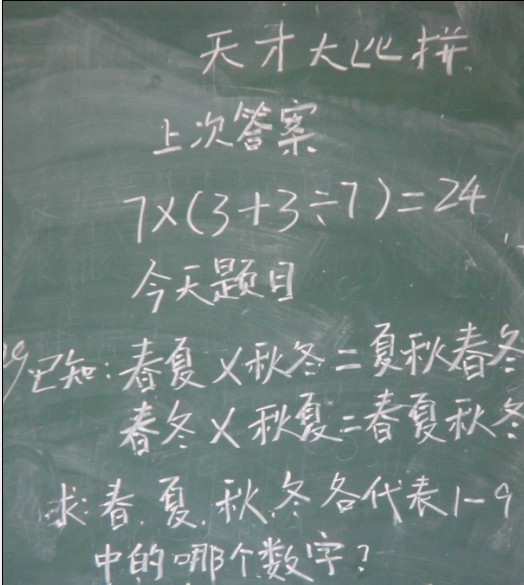 天才大比拼
上次答案
7×(3+3÷7)=24
今天题目
已知:春夏×秋冬=夏秋春冬
春冬×秋夏=春夏秋冬
求:春.夏.秋.冬各代表1-9
中的哪个数字?